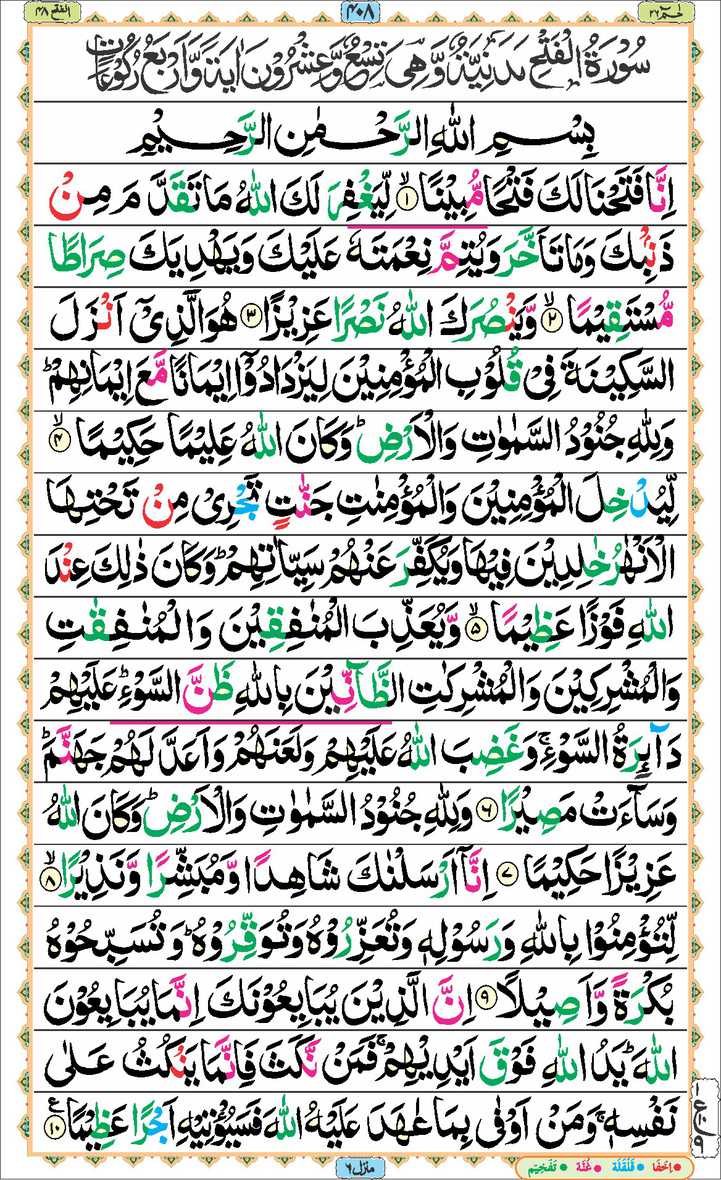 الفتح ٤٨
٤٠٨
حٰمٓ ٢٦
سُوْرَةُ الْفَتْحِ مَدَنِيَّةٌ وَّهِيَ تِسْعٌ وَّعِشْرُوْنَ اٰيَةً وَّاَرْبَعُ رُكُوْعَاتٍ
بِسْمِ اللّٰهِ الرَّحْمٰنِ الرَّحِيْمِ
اِنَّا فَتَحْنَا لَكَ فَتْحًا مُّبِيْنًا ۙ‏﴿١﴾ لِّيَغْفِرَ لَكَ اللّٰهُ مَا تَقَدَّمَ مِنْ
ذَنْۢبِكَ وَمَا تَاَخَّرَ وَيُتِمَّ نِعْمَتَهٗ عَلَيْكَ وَيَهْدِيَكَ صِرَاطًا
مُّسْتَقِيْمًا ۙ‏﴿٢﴾ وَّيَنْصُرَكَ اللّٰهُ نَصْرًا عَزِيْزًا ﴿٣﴾ هُوَ الَّذِيْۤ اَنْزَلَ
السَّكِيْنَةَ فِيْ قُلُوْبِ الْمُؤْمِنِيْنَ لِيَزْدَادُوْۤا اِيْمَانًا مَّعَ اِيْمَانِهِمْ ؕ
وَلِلّٰهِ جُنُوْدُ السَّمٰوٰتِ وَالْاَرْضِ ؕ وَكَانَ اللّٰهُ عَلِيْمًا حَكِيْمًا ۙ‏﴿٤﴾
لِّيُدْخِلَ الْمُؤْمِنِيْنَ وَالْمُؤْمِنٰتِ جَنّٰتٍ تَجْرِيْ مِنْ تَحْتِهَا
الْاَنْهٰرُ خٰلِدِيْنَ فِيْهَا وَيُكَفِّرَ عَنْهُمْ سَيِّاٰتِهِمْ ؕ وَكَانَ ذٰلِكَ عِنْدَ
اللّٰهِ فَوْزًا عَظِيْمًا ۙ‏﴿٥﴾ وَّيُعَذِّبَ الْمُنٰفِقِيْنَ وَالْمُنٰفِقٰتِ
وَالْمُشْرِكِيْنَ وَالْمُشْرِكٰتِ الظَّآنِّيْنَ بِاللّٰهِ ظَنَّ السَّوْءِ ؕ عَلَيْهِمْ
دَآئِرَةُ السَّوْءِ ۚ وَغَضِبَ اللّٰهُ عَلَيْهِمْ وَلَعَنَهُمْ وَاَعَدَّ لَهُمْ جَهَنَّمَ ؕ
وَسَآءَتْ مَصِيْرًا ﴿٦﴾ وَلِلّٰهِ جُنُوْدُ السَّمٰوٰتِ وَالْاَرْضِ ؕ وَكَانَ اللّٰهُ
عَزِيْزًا حَكِيْمًا ﴿٧﴾ اِنَّاۤ اَرْسَلْنٰكَ شَاهِدًا وَّمُبَشِّرًا وَّنَذِيْرًا ۙ‏﴿٨﴾
لِّتُؤْمِنُوْا بِاللّٰهِ وَرَسُوْلِهٖ وَتُعَزِّرُوْهُ وَتُوَقِّرُوْهُ ؕ وَتُسَبِّحُوْهُ
بُكْرَةً وَّاَصِيْلًا ﴿٩﴾ اِنَّ الَّذِيْنَ يُبَايِعُوْنَكَ اِنَّمَا يُبَايِعُوْنَ
اللّٰهَ ؕ يَدُ اللّٰهِ فَوْقَ اَيْدِيْهِمْ ۚ فَمَنْ نَّكَثَ فَاِنَّمَا يَنْكُثُ عَلٰى
نَفْسِهٖ ۚ وَمَنْ اَوْفٰى بِمَا عٰهَدَ عَلَيْهُ اللّٰهَ فَسَيُؤْتِيْهِ اَجْرًا عَظِيْمًا ﴿١٠﴾ ع
منزل ٦
اِخفَا قَلْقَلَة غُنَّة تَفخِيْم